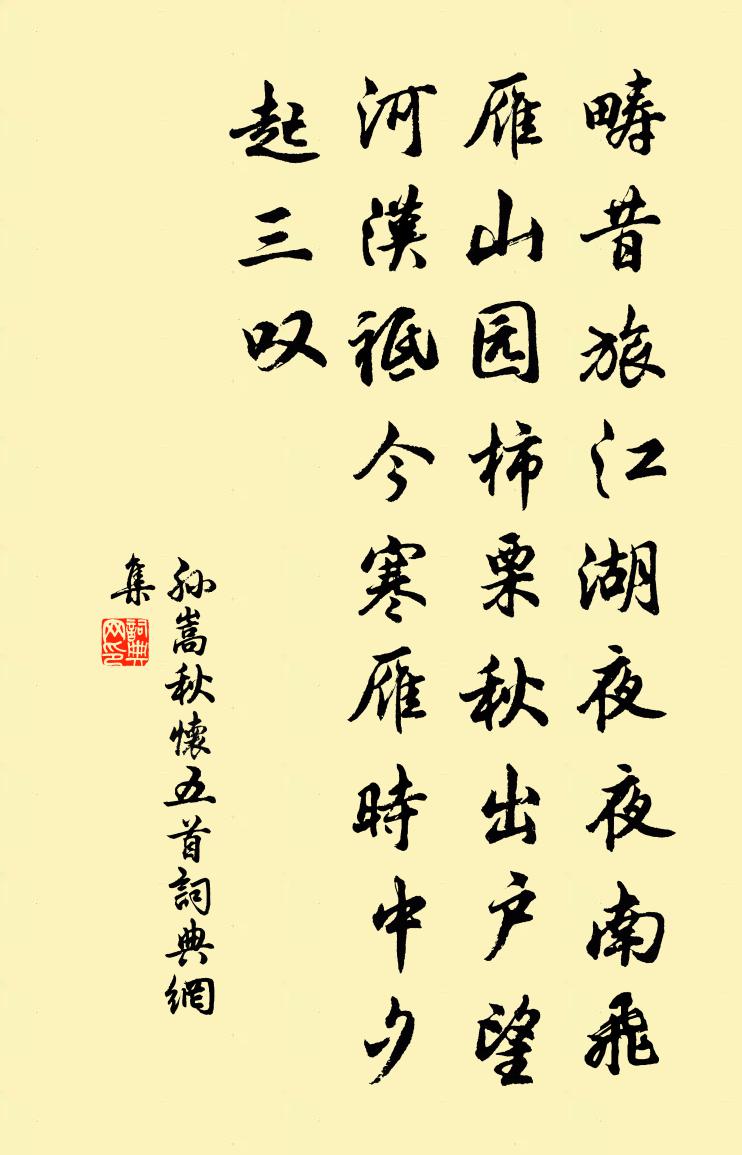 畴昔旅江湖夜夜南飛
雁山园柿栗秋出户望
河漢祗今寒雁時中夕
起三叹
孙嵩秋懷五首詞典網
集
詞典網印